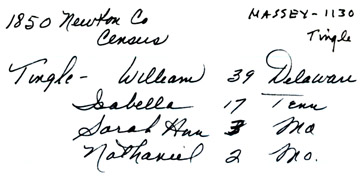 1850 Newton Co
Census
MASSEY-1130
Tingle
Tingle - William 39 Delaware
Isabella 17 Tenn
Sarah Ann 3 Mo
Nathaniel 2 Mo.